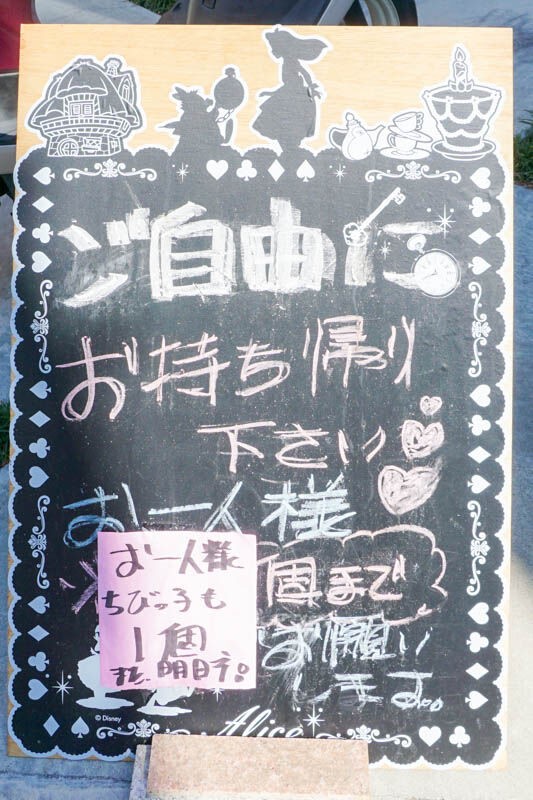 ご自由に
お持ち帰り
下さい
お一人様
個まで
お願い
します。
お一人様
ちびっ子も
1個
© Disney
Alice